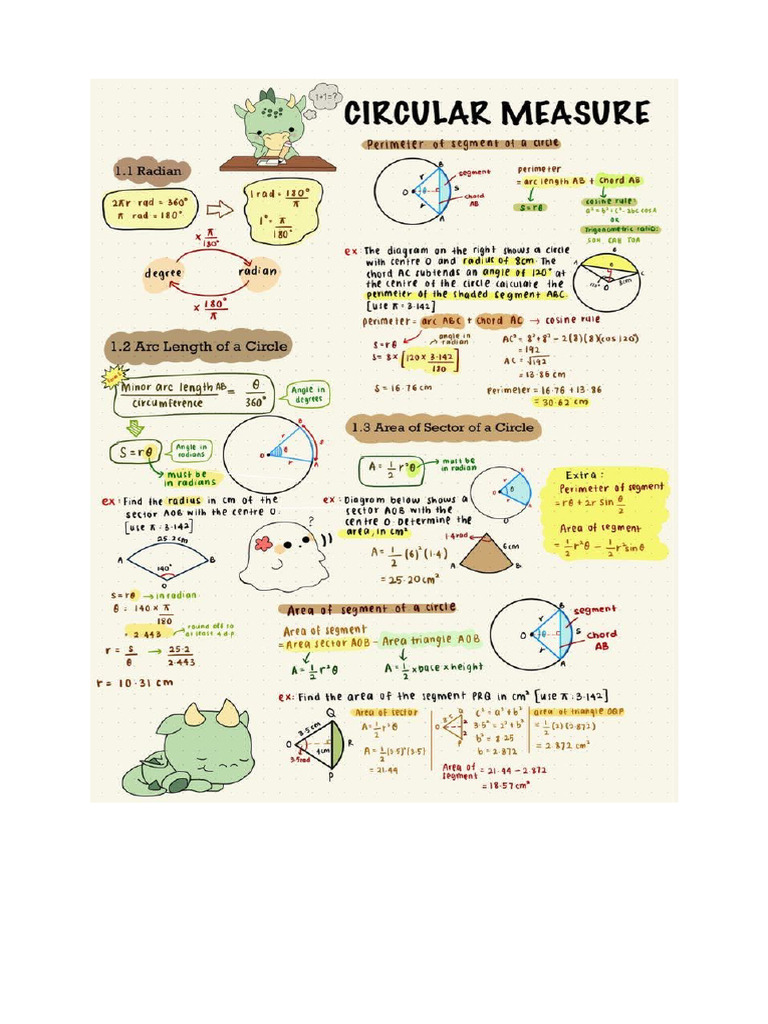 1+1=?
CIRCULAR MEASURE
1.1 Radian
2πr rad = 360°
π rad = 180°
1 rad = 180°/π
1° = π/180°
× π/180°
degree
radian
× 180°/π
1.2 Arc Length of a Circle
Minor arc length AB / circumference = θ / 360°
Angle in degrees
S = rθ
Angle in radians
must be in radians
ex: Find the radius in cm of the
sector AOB with the centre O.
[use π = 3.142]
25.2 cm
A
B
140°
O
s = rθ → in radian
θ = 140 × π/180
= 2.443
round off to at least 4 d.p
r = s/θ → 25.2/2.443
r = 10.31 cm
Perimeter of segment of a circle
B
segment
O
r
θ
S
chord AB
A
perimeter
= arc length AB + chord AB
s = rθ
cosine rule
a² = b² + c² - 2bc cos A
or
Trigonometric ratio:
SOH, CAH TOA
ex: The diagram on the right shows a circle
with centre O and radius of 8cm. The
chord AC subtends an angle of 120° at
the centre of the circle calculate the
perimeter of the shaded segment ABC.
[use π = 3.142]
B
A
C
120°
O
8cm
perimeter = arc ABC + chord AC → cosine rule
s = rθ
angle in radian
s = 8 × [120 × 3.142 / 180]
S = 16.76 cm
AC² = 8² + 8² - 2(8)(8)(cos 120)
= 192
AC = √192
= 13.86 cm
Perimeter = 16.76 + 13.86
= 30.62 cm
1.3 Area of Sector of a Circle
A = 1/2 r²θ
must be in radian
Extra:
Perimeter of segment
= rθ + 2r sin θ/2
Area of segment
= 1/2 r²θ - 1/2 r² sin θ
ex: Diagram below shows a
sector AOB with the
centre O. Determine the
area, in cm²
1.4 rad
6cm
A
B
A = 1/2 (6)² (1.4)
= 25.20 cm²
?
Area of segment of a circle
Area of segment
= Area sector AOB - Area triangle AOB
A = 1/2 r²θ
A = 1/2 × base × height
B
segment
O
r
θ
chord AB
A
ex: Find the area of the segment PRQ in cm² [use π = 3.142]
Q
3.5cm
O
4cm
R
3.5 rad
P
Area of sector
A = 1/2 r²θ
A = 1/2 (3.5)² (3.5)
= 21.44
c² = a² + b²
3.5² = 2² + b²
b² = 8.25
b = 2.872
area of triangle OQP
= 1/2 (2)(2.872)
= 2.872 cm²
Area of segment = 21.44 - 2.872
= 18.57 cm²